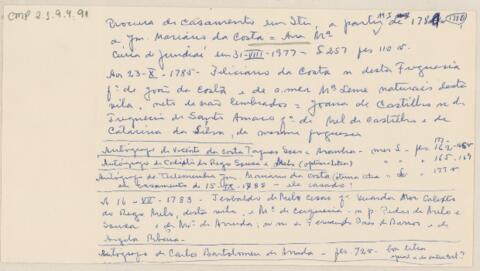 CMP 2.1.9.4.91
Procura de casamento em Itu, a partir de 178
a Jm. Mariano da Costa = Ana Mª
Cúria de Jundiaí em 31-VIII-1977 - S 257 fes 110 v.
Aos 23-X-1785 - Feliciano da Costa n desta Freguesia
fº de João da Costa e de s. mer Mª Leme naturais desta
vila, neto de não lembrados = Joana de Castilho n. de
Freguesia de Santo Amaro fª de Mel de Castilho e de
Catarina da Silva, da mesma freguesia
Autógrafo de Vicente da Costa Taques Goes e Aranha - mes S - fes 162
Autógrafo de Calixto do Rego Sousa e Melo (optima letra) " 165-169
Autógrafo de testemunha Jm Mariano da Costa (ótima letra) 177 v.
em casamento de 15-IX-1788 - ele casado!
A 16-VII-1783 - Teobaldo de Melo Cesar fº Guarda Mor Calixto
do Rego Melo, desta vila, e Mª de Cerqueira - n p. Pedro de Melo e
Sousa e de Mª de Arruda, n m de Fernando Dias de Barros e de
Angela Ribeiro.
Autógrafo de Carlos Bartolomeu de Arruda - fes 72v - boa letra